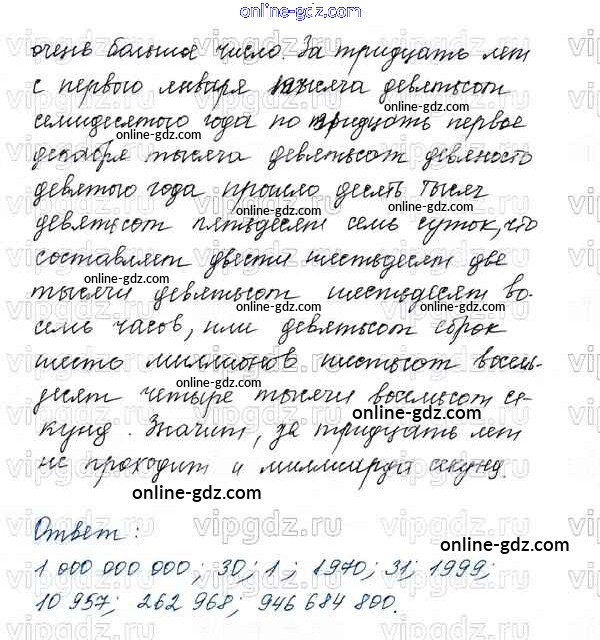 online-gdz.com
очень большое число. За тридцать лет
с первого января тысяча девятьсот
online-gdz.com
семидесятого года по тридцать первое
online-gdz.com
декабря тысяча девятьсот девяносто
девятого года прошло десять тысяч
online-gdz.com
девятьсот пятьдесят семь суток, что
составляет двести шестьдесят две
online-gdz.com
тысячи девятьсот шестьдесят во-
семь часов, или девятьсот сорок
online-gdz.com
шесть миллионов шестьсот восемь-
десят четыре тысячи восемьсот се-
online-gdz.com
online-gdz.com
кунд. Значит, за тридцать лет
не проходит и миллиарда секунд.
online-gdz.com
vipgdz.ru
Ответ:
online-gdz.com
1 000 000 000; 30; 1; 1970; 31; 1999;
10 957; 262 968; 946 684 800.
online-gdz.com